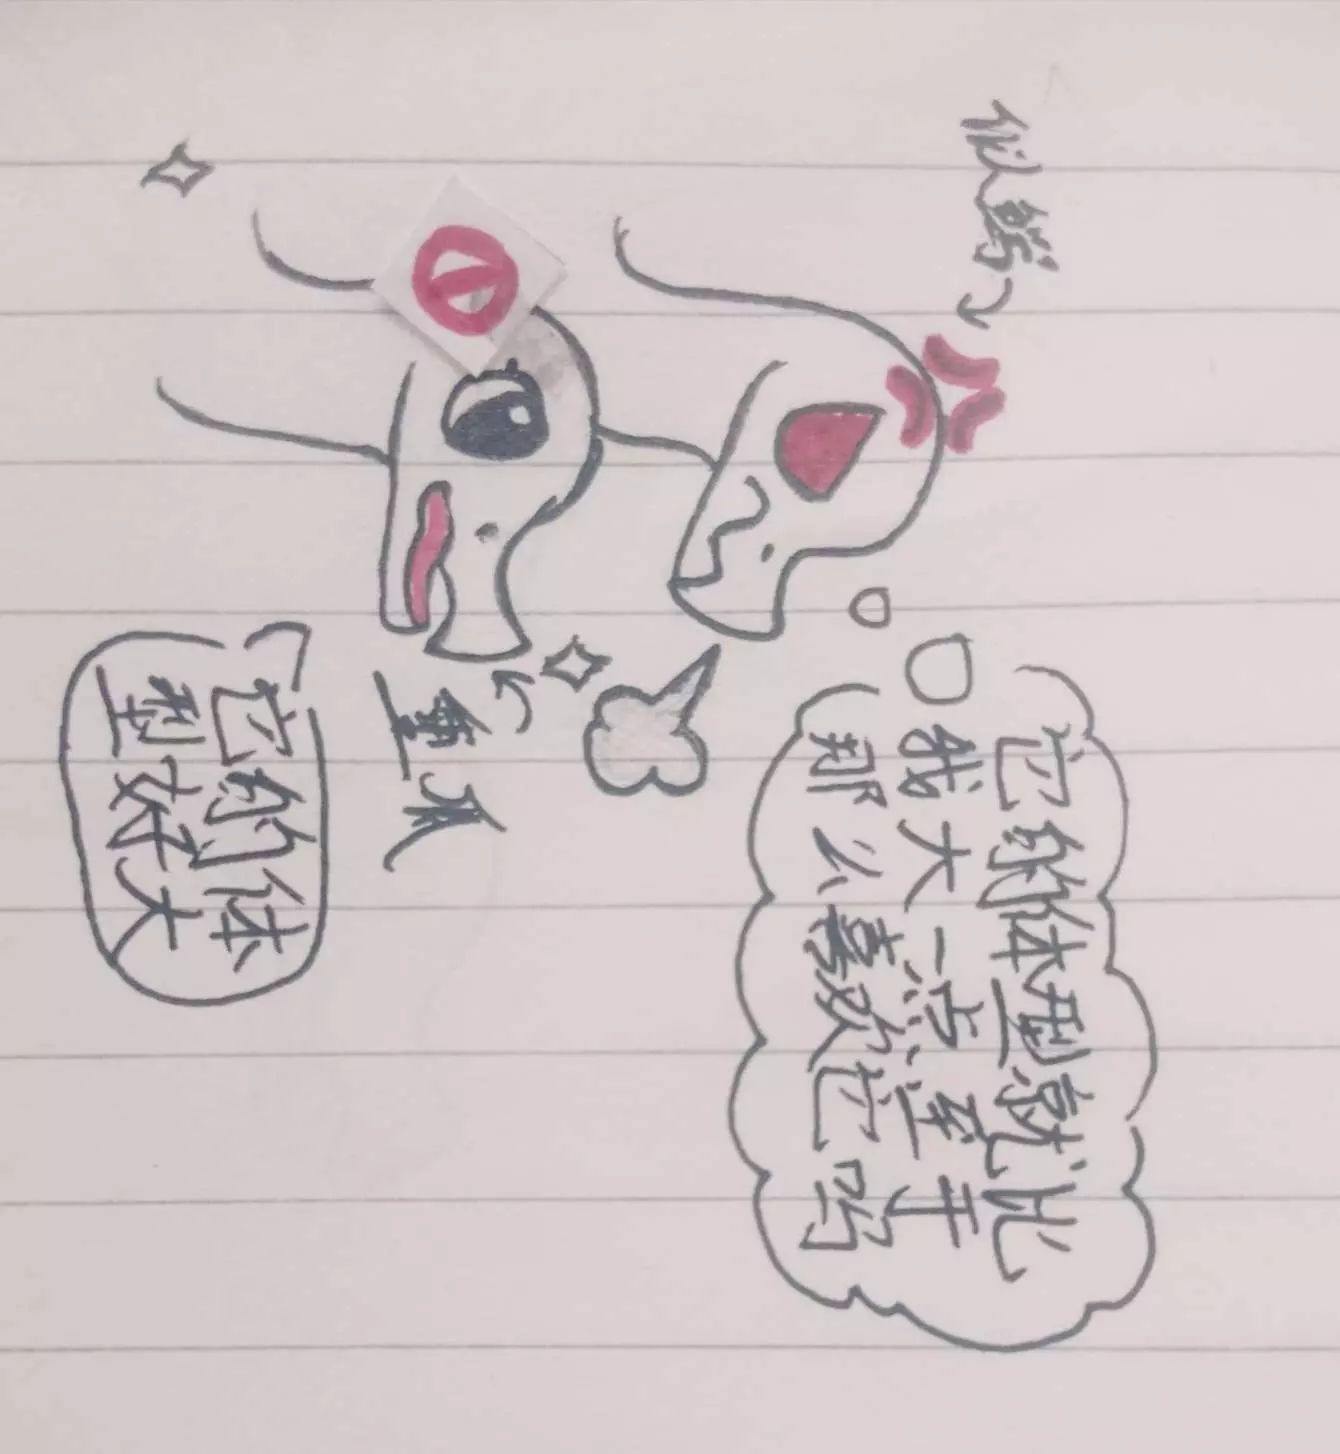 似鳄
它的体型就比
我大一点至于
那么喜欢它吗
重爪
它的体
型好大